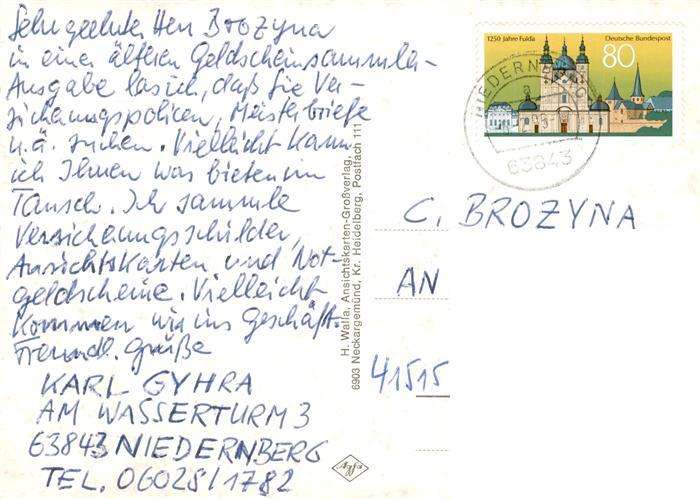 Sehr geehrter Herr Brozyna
in einer älteren Geldscheinsammler-
Ausgabe las ich, daß Sie Ver-
sicherungspolicen, Meisterbriefe
u.ä. suchen. Vielleicht kann
ich Ihnen was bieten im
Tausch. Ich sammle
Versicherungsschilder,
Ansichtskarten und Not-
geldscheine. Vielleicht
kommen wir ins Geschäft.
Freundl. Grüße
KARL GYHRA
AM WASSERTURM 3
63843 NIEDERNBERG
TEL. 06028/1782
H. Walla, Ansichtskarten-Großverlag,
6903 Neckargemünd, Kr. Heidelberg, Postfach 111
Agfa
1250 Jahre Fulda
Deutsche Bundespost
80
63843
C. BROZYNA
AN
41515